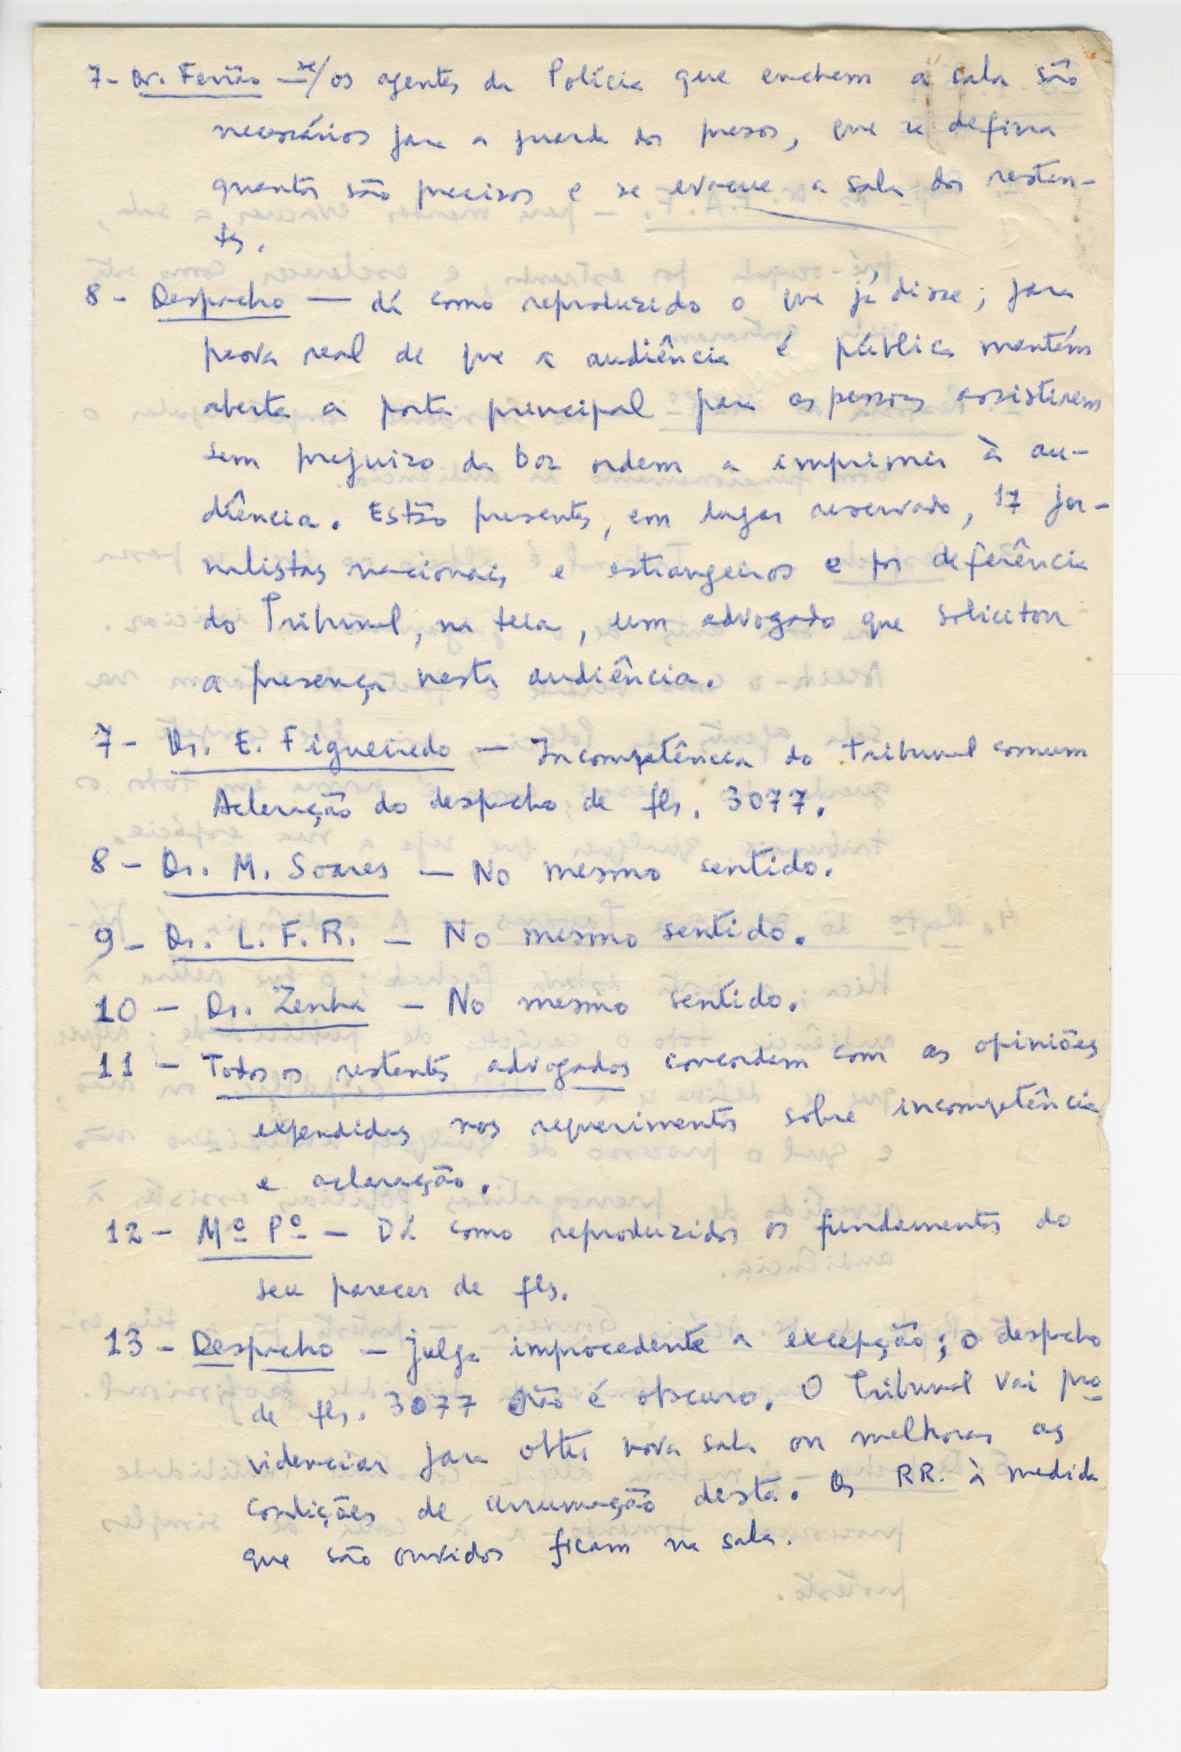 7- Dr. Ferião — se/ os agentes da Polícia que enchem a sala são
necessários para a guarda dos presos, que se defina
quantos são precisos e se evacue a sala dos restan-
tes.
8 - Despacho — dá como reproduzido o que já disse; para
prova real de que a audiência é pública mantém
aberta a porta principal para as pessoas assistirem
sem prejuizo da boa ordem a imprimir à au-
diência. Estão presentes, em lugar reservado, 17 jor-
nalistas nacionais e estrangeiros e por deferência
do Tribunal, na teia, um advogado que solicitou
a presença nesta audiência.
7 - Dr. E. Figueiredo — Incompetência do tribunal comum
Aclaração do despacho de fls. 3077.
8 - Dr. M. Soares — No mesmo sentido.
9 - Dr. L. F. R. — No mesmo sentido.
10 - Dr. Zenha — No mesmo sentido.
11 - Todos os restantes advogados concordam com as opiniões
expendidas nos requerimentos sobre incompetência
e aclaração.
12 - Mº Pº — Dá como reproduzidos os fundamentos do
seu parecer de fls.
13 - Despacho — julga improcedente a excepção; o despacho
de fls. 3077 não é obscuro. O Tribunal vai pro-
videnciar para obter nova sala ou melhorar as
condições de arrumação desta. Os RR. à medida
que são ouvidos ficam na sala.